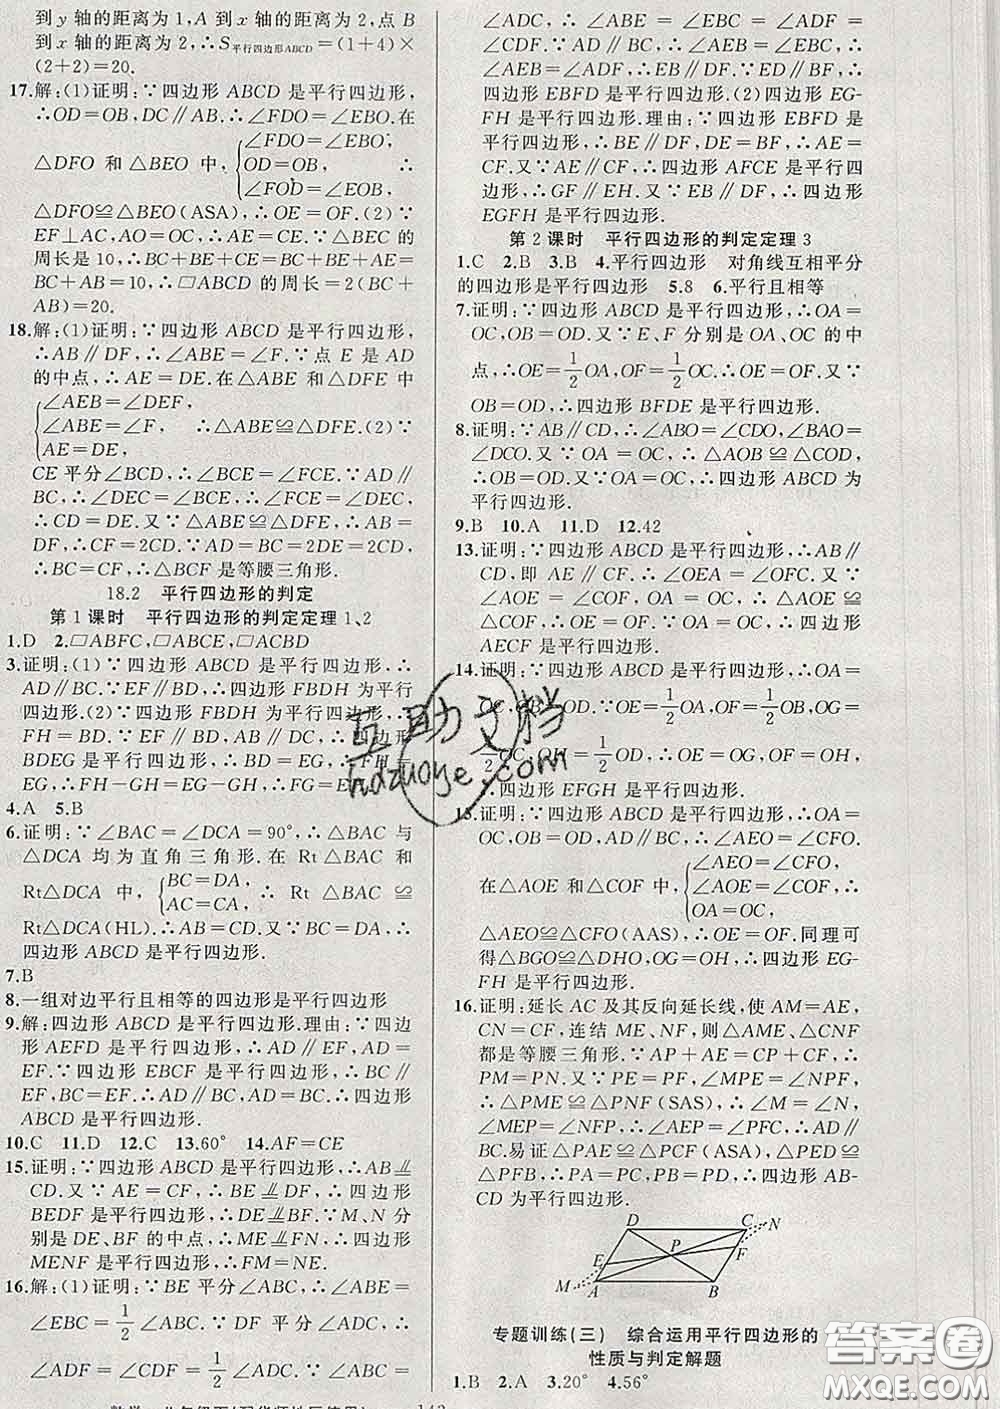 到 y 轴的距离为 1,A 到 x 轴的距离为 2,点 B
到 x 轴的距离为 2,∴S平行四边形ABCD=(1+4)×
(2+2)=20.
17.解:(1)证明:∵四边形 ABCD 是平行四边形,
∴OD=OB,DC∥AB.∴∠FDO=∠EBO.在
△DFO 和△BEO 中,{∠FDO=∠EBO, OD=OB, ∠FOD=∠EOB, ∴
△DFO≌△BEO(ASA),∴OE=OF.(2)∵
EF⊥AC,AO=OC,∴AE=CE.∵△BEC 的
周长是 10,∴BC+BE+CE=BC+BE+AE=
BC+AB=10,∴▱ABCD 的周长=2(BC+
AB)=20.
18.解:(1)证明:∵四边形 ABCD 是平行四边形,
∴AB∥DF,∴∠ABE=∠F.∵点 E 是 AD
的中点,∴AE=DE.在△ABE 和△DFE 中
{∠AEB=∠DEF, ∠ABE=∠F, AE=DE, ∴△ABE≌△DFE.(2)∵
CE 平分∠BCD,∴∠BCE=∠FCE.∵AD∥
BC,∴∠DEC=∠BCE,∴∠FCE=∠DEC,
∴CD=DE.又∵△ABE≌△DFE,∴AB=
DF,∴CF=2CD.∵AD=BC=2DE=2CD,
∴BC=CF,∴△BCF 是等腰三角形.
18.2 平行四边形的判定
第 1 课时 平行四边形的判定定理 1、2
1.D 2.▱ABFC,▱ABCE,▱ACBD
3.证明:(1)∵四边形 ABCD 是平行四边形,∴
AD∥BC.∵EF∥BD,∴四边形 FBDH 为平行
四边形.(2)∵四边形 FBDH 为平行四边形,∴
FH=BD.∵EF∥BD,AB∥DC,∴四边形
BDEG 是平行四边形,∴BD=EG,∴FH=
EG,∴FH-GH=EG-GH,∴FG=EH.
4.A 5.B
6.证明:∵∠BAC=∠DCA=90°,∴△BAC 与
△DCA 均为直角三角形.在 Rt△BAC 和
Rt△DCA 中,{BC=DA, AC=CA, ∴ Rt△BAC ≌
Rt△DCA(HL).∴AB=CD.又∵BC=DA,∴
四边形 ABCD 是平行四边形.
7.B
8.一组对边平行且相等的四边形是平行四边形
9.解:四边形 ABCD 是平行四边形.理由:∵四边
形 AEFD 是平行四边形,∴AD∥EF,AD=
EF.∵四边形 EBCF 是平行四边形,∴BC∥
EF,BC=EF.∴AD∥BC,AD=BC,∴四边形
ABCD 是平行四边形.
10.C 11.D 12.C 13.60° 14.AF=CE
15.证明:∵四边形 ABCD 是平行四边形,∴AB⫫
CD.又∵AE=CF,∴BE⫫DF,∴四边形
BEDF 是平行四边形,∴DE⫫BF.∵M、N 分
别是 DE、BF 的中点,∴ME⫫FN,∴四边形
MENF 是平行四边形,∴FM=NE.
16.解:(1)证明:∵BE 平分∠ABC,∴∠ABE=
∠EBC=1/2∠ABC.∵DF 平分∠ADC,∴
∠ADF=∠CDF=1/2∠ADC.∵∠ABC=
∠ADC,∴∠ABE=∠EBC=∠ADF=
∠CDF.∵AD∥BC,∴∠AEB=∠EBC,∴
∠AEB=∠ADF,∴EB∥DF.∵ED∥BF,∴四
边形 EBFD 是平行四边形.(2)四边形 EG-
FH 是平行四边形.理由:∵四边形 EBFD 是
平行四边形,∴BE∥DF,DE=BF,∴AE=
CF.又∵AE∥CF,∴四边形 AFCE 是平行四
边形,∴GF∥EH.又∵EB∥DF,∴四边形
EGFH 是平行四边形.
第 2 课时 平行四边形的判定定理 3
1.C 2.B 3.B 4.平行四边形 对角线互相平分
的四边形是平行四边形 5.8 6.平行且相等
7.证明:∵四边形 ABCD 是平行四边形,∴OA=
OC,OB=OD.又∵E、F 分别是 OA、OC 的中
点,∴OE=1/2OA,OF=1/2OC.∴OE=OF.又∵
OB=OD,∴四边形 BFDE 是平行四边形.
8.证明:∵AB∥CD,∴∠ABO=∠CDO,∠BAO=
∠DCO.又∵OA=OC,∴△AOB≌△COD,
∴OB=OD.又∵OA=OC,∴四边形 ABCD 为
平行四边形.
9.B 10.A 11.D 12.42
13.证明:∵四边形 ABCD 是平行四边形,∴AB∥
CD,即 AE∥CF,∴∠OEA=∠OFC.又∵
∠AOE=∠COF,OA=OC,∴△AOE≌
△COF,∴OE=OF.又∵OA=OC,∴四边形
AECF 是平行四边形.
14.证明:∵四边形 ABCD 是平行四边形,∴OA=
OC,OB=OD.∵OE=1/2OA,OF=1/2OB,OG=
1/2OC,OH=1/2OD,∴OE=OG,OF=OH,
∴四边形 EFGH 是平行四边形.
15.证明:∵四边形 ABCD 是平行四边形,∴OA=
OC,OB=OD,AD∥BC,∴∠AEO=∠CFO.
在△AOE 和△COF 中,{∠AEO=∠CFO, ∠AOE=∠COF, OA=OC, ∴
△AEO≌△CFO(AAS),∴OE=OF.同理可
得△BGO≌△DHO,OG=OH,∴四边形 EG-
FH 是平行四边形.
16.证明:延长 AC 及其反向延长线,使 AM=AE,
CN=CF,连结 ME、NF,则△AME、△CNF
都是等腰三角形.∵AP+AE=CP+CF,∴
PM=PN.又∵PE=PF,∠MPE=∠NPF,
∴△PME≌△PNF(SAS),∴∠M=∠N,
∠MEP=∠NFP,∴∠AEP=∠PFC,∴AD∥
BC.易证△PAE≌△PCF(ASA),△PED≌
△PFB,∴PA=PC,PD=PB,∴四边形 AB-
CD 为平行四边形.
D C N
E P F
M A B
专题训练(三) 综合运用平行四边形的
性质与判定解题
1.B 2.A 3.20° 4.56°
互助文档
hdzuoye.com
答案圈
MXQE.COM